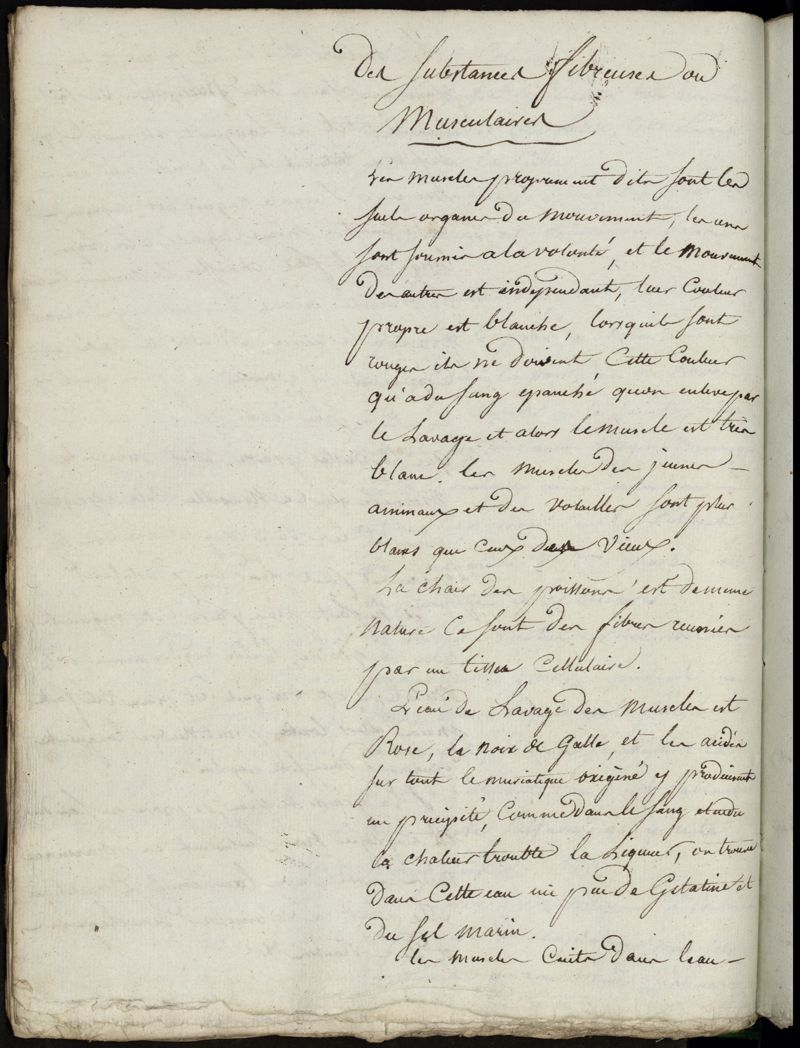 Des Substances fibreuses ou
Musculaires
Les muscles proprement dits sont les
seuls organes du mouvement, les uns
sont soumis a la volonté, et le mouvement
des autres est independant, leur Couleur
propre est blanche, lorsquils sont
rouges ils ne doivent Cette Couleur
qu'a du sang epanché quon enleve par
le Lavage et alors le muscle est très
blanc. les muscles des jeunes
animaux et des volailles sont plus
blancs que Ceux des Vieux.
La chair des poissons est de meme
nature Ce sont des fibres reunies
par un tissu Cellulaire.
L'eau de Lavage des muscles est
Rose, la noix de Galle, et les acides
sur tout le muriatique oxigéné y produisent
un precipité, Comme dans le sang
la chaleur trouble la Liqueur, on trouve
dans Cette eau un peu de Gelatine et
du sel marin.
les muscles Cuits dans l'eau